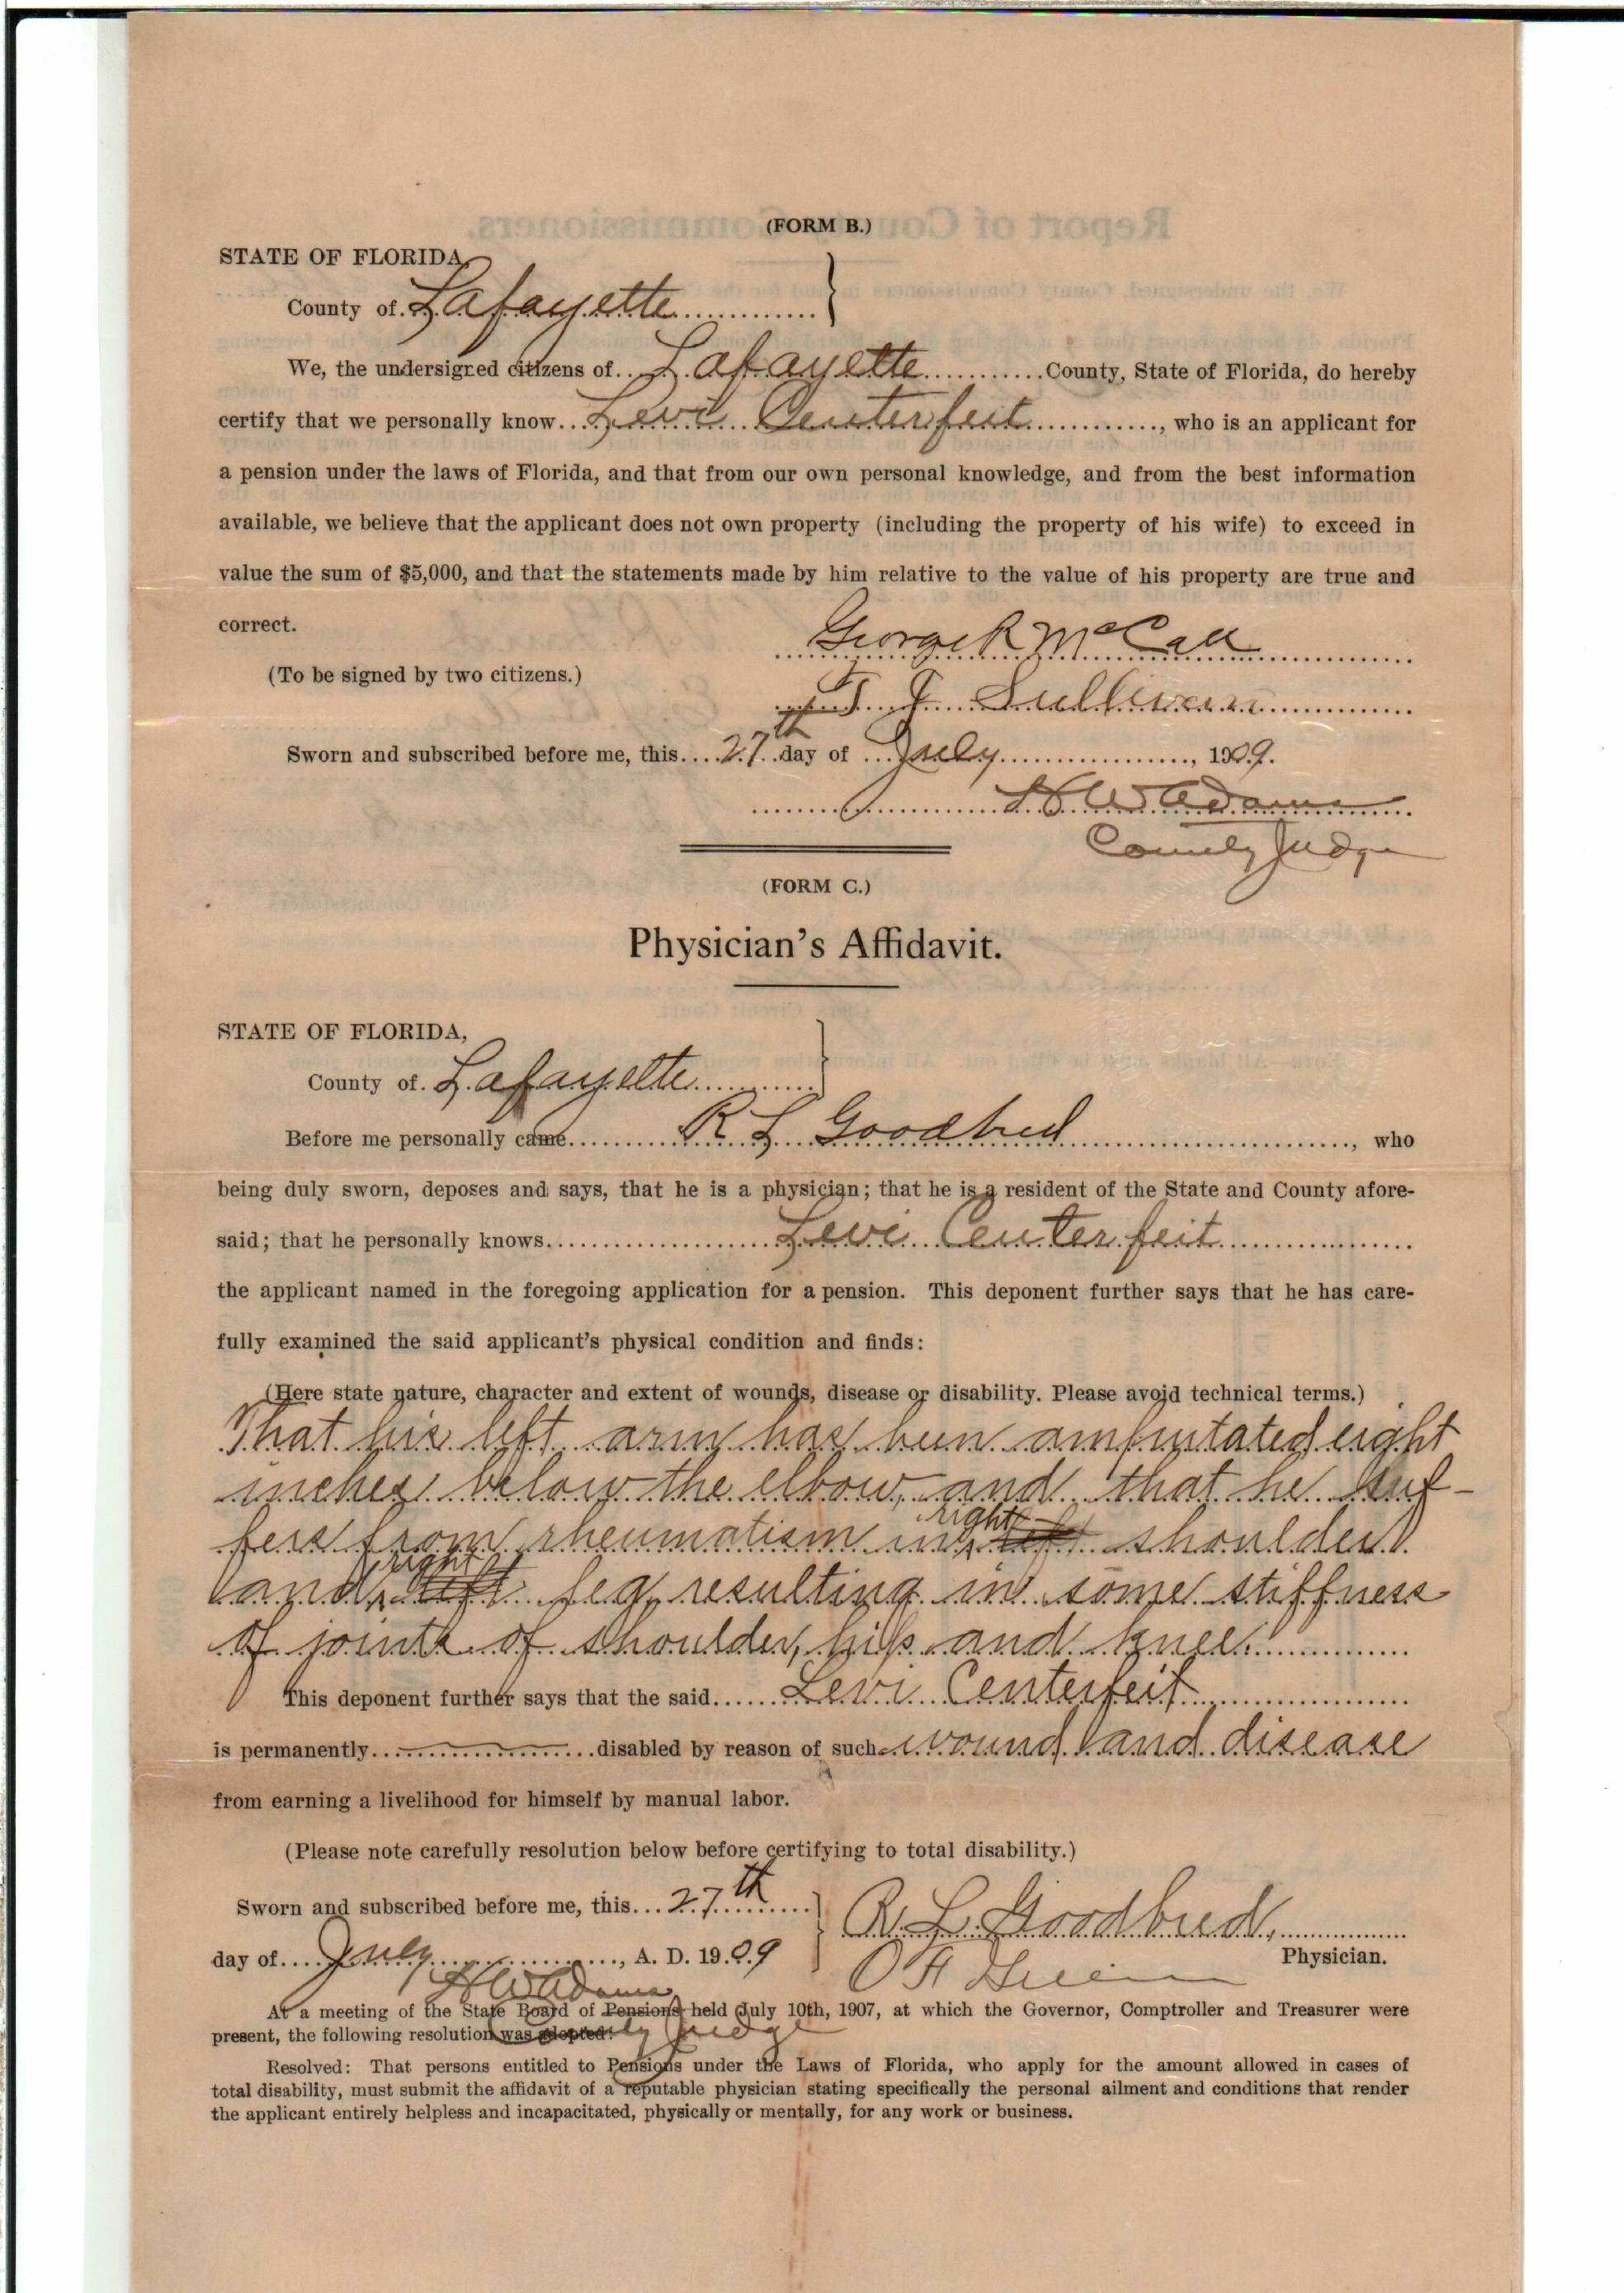 (FORM B.)
STATE OF FLORIDA,
County of Lafayette
We, the undersigned citizens of Lafayette County, State of Florida, do hereby
certify that we personally know Levi Centerfeit, who is an applicant for
a pension under the laws of Florida, and that from our own personal knowledge, and from the best information
available, we believe that the applicant does not own property (including the property of his wife) to exceed in
value the sum of $5,000, and that the statements made by him relative to the value of his property are true and
correct.
George R McCall
(To be signed by two citizens.)
T. J. Sullivan
Sworn and subscribed before me, this 27th day of July, 1909.
H W Adams
County Judge
(FORM C.)
Physician's Affidavit.
STATE OF FLORIDA,
County of Lafayette
Before me personally came R L Goodbred, who
being duly sworn, deposes and says, that he is a physician; that he is a resident of the State and County afore-
said; that he personally knows Levi Centerfeit
the applicant named in the foregoing application for a pension. This deponent further says that he has care-
fully examined the said applicant's physical condition and finds:
(Here state nature, character and extent of wounds, disease or disability. Please avoid technical terms.)
That his left arm has been amputated eight
inches below the elbow, and that he suf-
fers from rheumatism in right left shoulder
and right left leg, resulting in some stiffness
of joints of shoulder, hip and knee.
This deponent further says that the said Levi Centerfeit
is permanently disabled by reason of such wound and disease
from earning a livelihood for himself by manual labor.
(Please note carefully resolution below before certifying to total disability.)
Sworn and subscribed before me, this 27th
R. L. Goodbred,
day of July, A. D. 1909
Physician.
O F Green
H W Adams
At a meeting of the State Board of Pensions held July 10th, 1907, at which the Governor, Comptroller and Treasurer were
present, the following resolution was adopted:
County Judge
Resolved: That persons entitled to Pensions under the Laws of Florida, who apply for the amount allowed in cases of
total disability, must submit the affidavit of a reputable physician stating specifically the personal ailment and conditions that render
the applicant entirely helpless and incapacitated, physically or mentally, for any work or business.